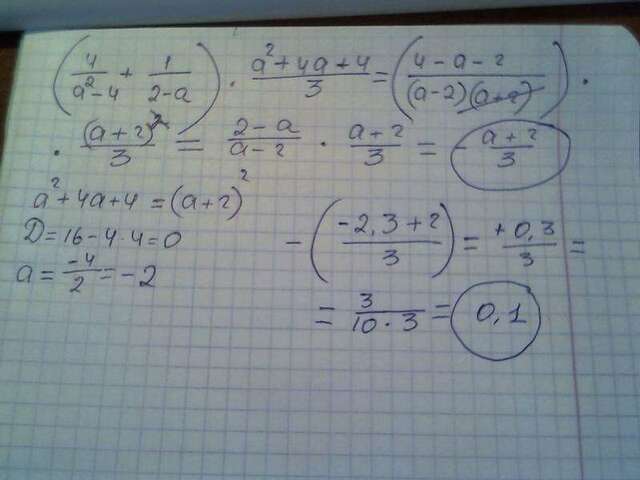 (4/(a²-4) + 1/(2-a)) · (a²+4a+4)/3 = ((4-a-2)/((a-2)(a+2))) ·
· (a+2)²/3 = (2-a)/(a-2) · (a+2)/3 = - (a+2)/3
a²+4a+4 = (a+2)²
D=16-4·4=0
a = -4/2 = -2
- ((-2,3+2)/3) = +0,3/3 =
= 3/(10·3) = 0,1